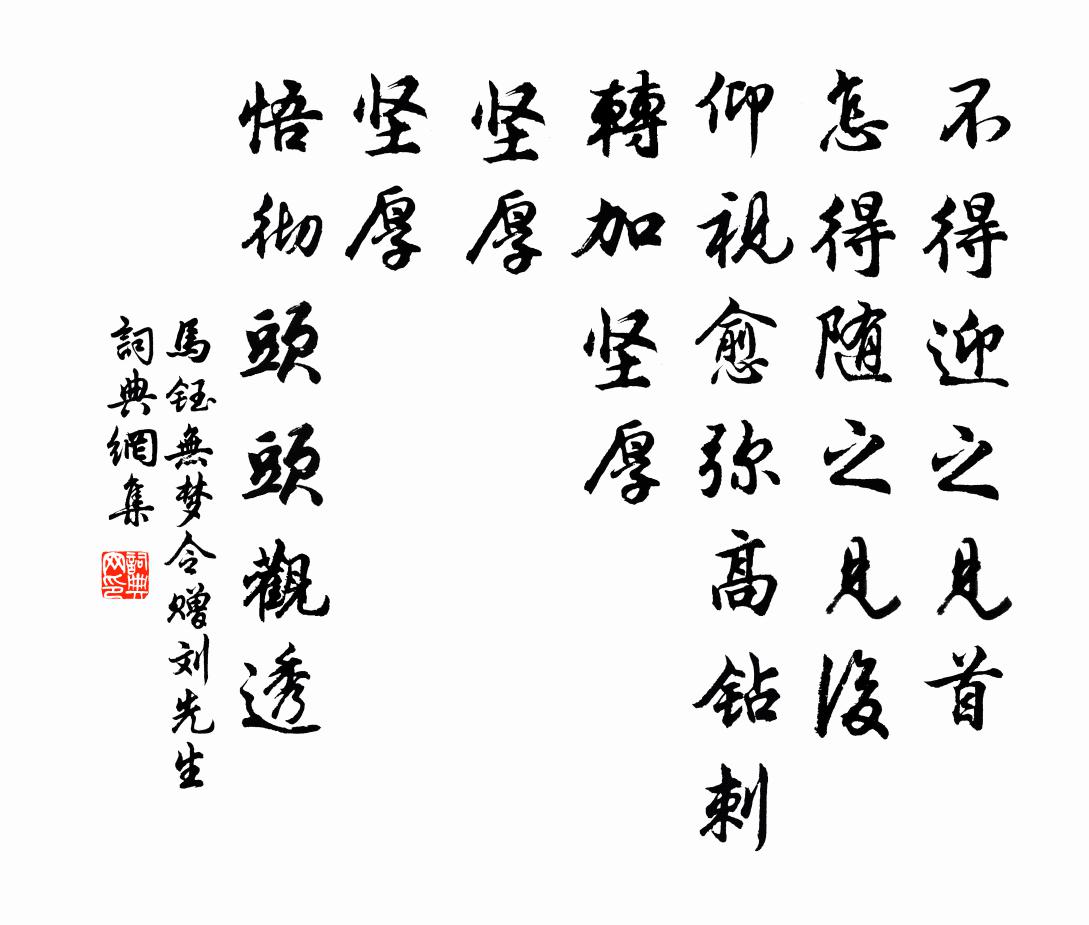 不得迎之見首
怎得随之見後
仰視愈弥高鈷刺
轉加坚厚
坚厚
坚厚
悟彻頭頭觀透
馬鈺無梦令赠刘先生
詞典網集
詞典网印